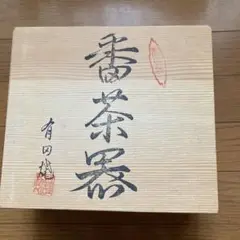 番茶器
有田焼